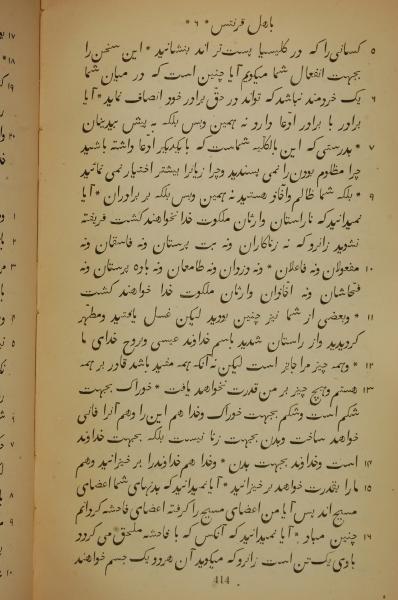 باهل قرنتس * ۶ *
۵ کسانی را که در کلیسیا پست‌تر اند بنشانید * این سخن را
بجهت انفعال شما میگویم آیا چنین است که در میان شما
۶ یک خردمند نباشد که تواند در حق برادر خود انصاف نماید * آیا
برادر با برادر ادعا دارد نه همین و بس بلکه به پیش بیدینان
۷ * بدرستی که این بالکلیه شماست که با یکدیگر ادعا داشته باشید
چرا مظلوم بودن را نمی پسندید و چرا زیانرا بیشتر اختیار نمی نمائید
۹ * بلکه شما ظالم و آفاز هستید نه همین و بس بلکه بر برادران * آیا
نمیدانید که ناراستان وارثان ملکوت خدا نخواهند گشت فریفته
نشوید زانرو که نه زناکاران ونه بت پرستان ونه فاسقان ونه
۱۰ مفعولان ونه فاعلان * ونه دزدان ونه طامعان ونه باده پرستان ونه
فحاشان ونه اخاذان وارثان ملکوت خدا خواهند گشت
۱۱ * وبعضی از شما نیز چنین بودید لیکن غسل یافتید ومطهر
گردیدید واز راستان شدید باسم خداوند عیسی وروح خدای ما
۱۲ * وهمه چیز مرا جائز است لیکن نه آنکه همه مفید باشد قادر بر همه
۱۳ هستم وهیچ چیز بر من قدرت نخواهد یافت * خوراک بجهت
شکم است وشکم بجهت خوراک وخدا هم این را وهم آنرا فانی
خواهد ساخت وبدن بجهت زنا نیست بلکه بجهت خداوند
۱۴ است وخداوند بجهت بدن * وخدا هم خداوند را بر خیزانید وهم
۱۵ ما را بقدرت خواهد بر خیزانید * آیا نمیدانید که بدنهای شما اعضای
مسیح اند پس آیا من اعضای مسیح را گرفته اعضای فاحشه گردانم
۱۶ چنین مباد * آیا نمیدانید که آنکس که با فاحشه ملحق می گردد
با وی یک تن است زانرو که میگوید آن هر دو یک جسم خواهند
414